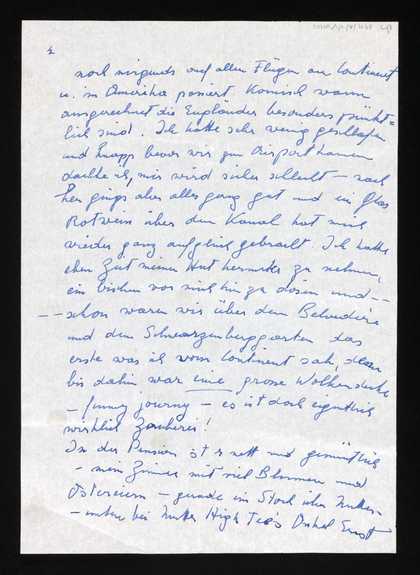 2
noch nirgends auf allen Flügen am Continent
u. in Amerika passiert. Komisch wenn
ausgerechnet die Engländer besonders pünkt=
lich sind. Ich hatte sehr wenig geschlafen
und knapp bevor wir zum Airport kamen
dachte ich, mir wird sicher schlecht – nach
her gings aber alles ganz gut und ein Glas
Rotwein über dem Kanal hat mich
wieder ganz auf gleich gebracht. Ich hatte
eben Zeit meinen Hut herunter zu nehmen,
ein bischen vor mich hin zu dösen und --
-- schon waren wir über dem Belvedere
und dem Schwarzenberggarten das
erste was ich vom Continent sah, denn
bis dahin war eine grosse Wolkendecke
– funny journey – es ist doch eigentlich
wirklich Zauberei!
In der Pension ist's nett und gemütlich
– mein Zimmer mit viel Blumen und
Ostereiern – gerade im Stock über Mutter
– unten bei Mutter High Tea's Onkel Ernst